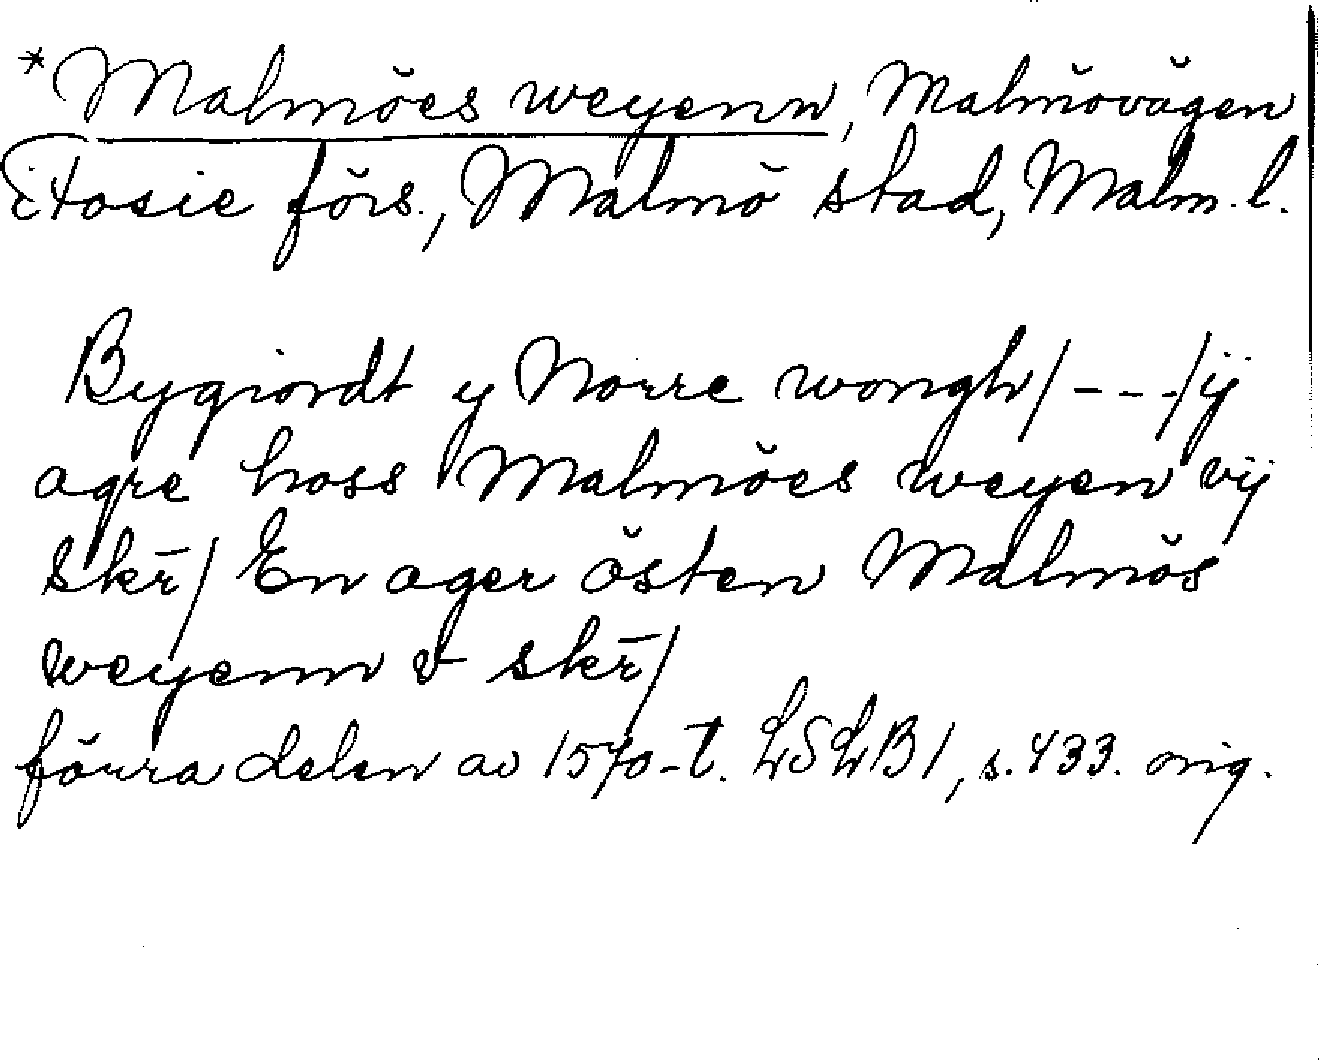 *Malmöes weyenn, Malmövägen
i Fosie förs., Malmö stad, Malm. l.
Bygiordt y Norre wongh/---/ij
agre hoss Malmöes weyen vij
skr̄/ En ager östen Malmös
weyenn v skr̄/
förra delen av 1570-t. LSLB1, s. 433. orig.